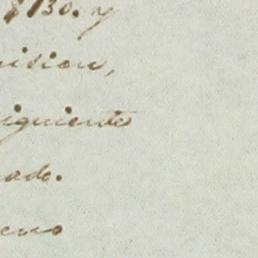 $130. y
ision,
iguiente
ado.
eno